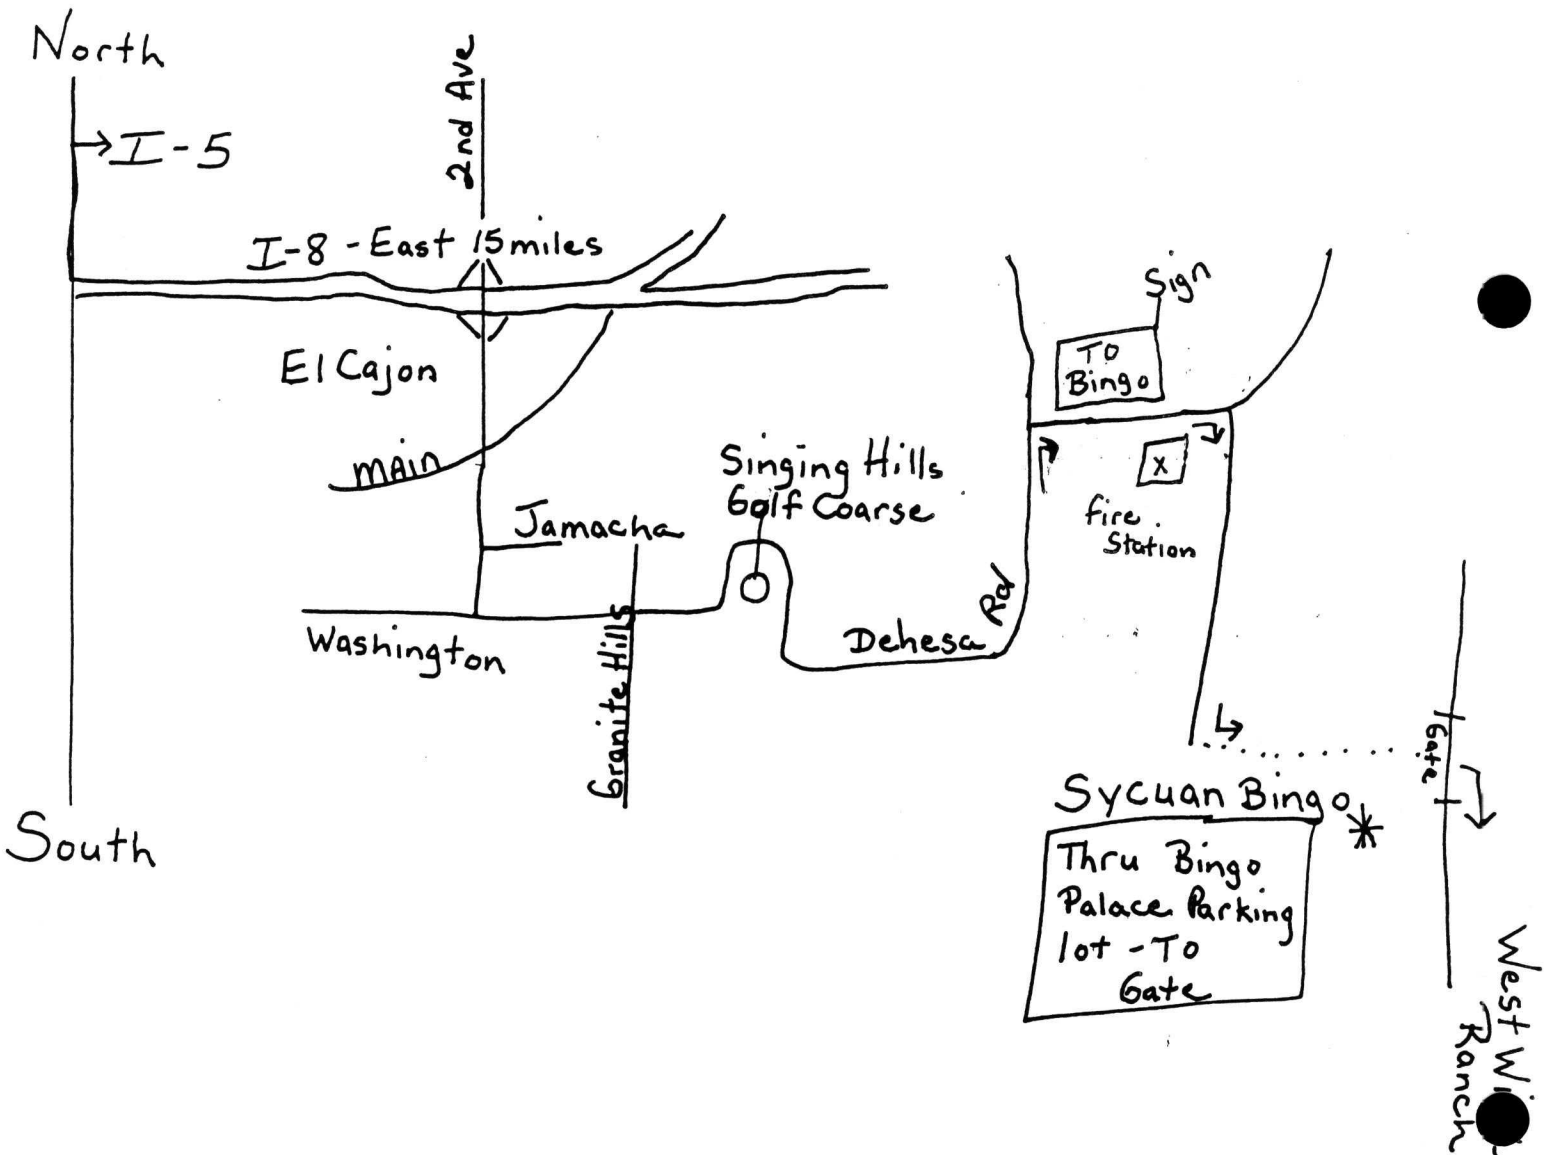 North
I-5
2nd Ave
I-8 - East 15 miles
El Cajon
MAIN
Jamacha
Washington
Granite Hills
Singing Hills
Golf Coarse
Dehesa Rd
Sign
TO
Bingo
X
fire
Station
Gate
Sycuan Bingo
Thru Bingo
Palace Parking
lot - To
Gate
South
West
Ranch